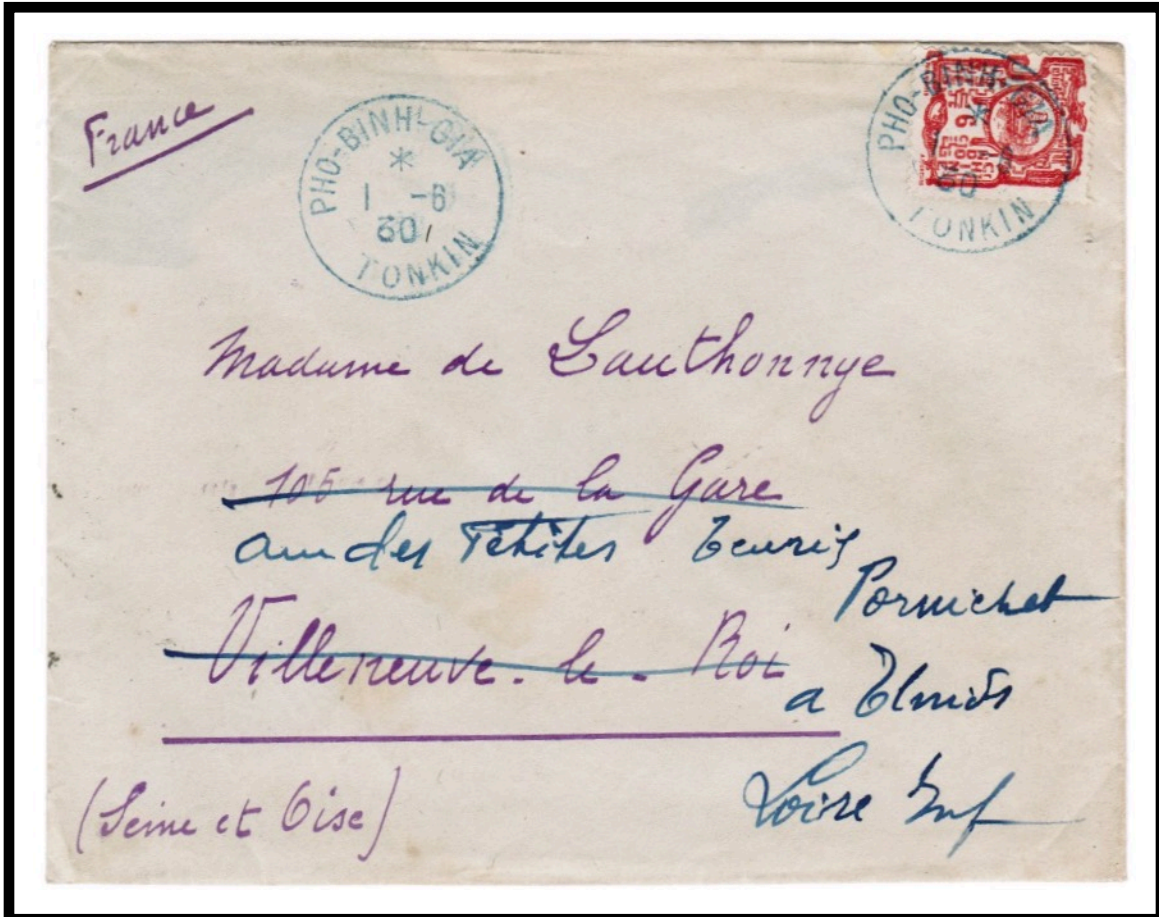 France
PHO-BINH-GIA
*
1 -6
30
TONKIN
PHO-BINH-GIA
*
30
TONKIN
Madame de Lauthonnye
105 rue de la Gare
des Petites
Pornichet
Villeneuve-le-Roi
a
Loire Inf
(Seine et Oise)